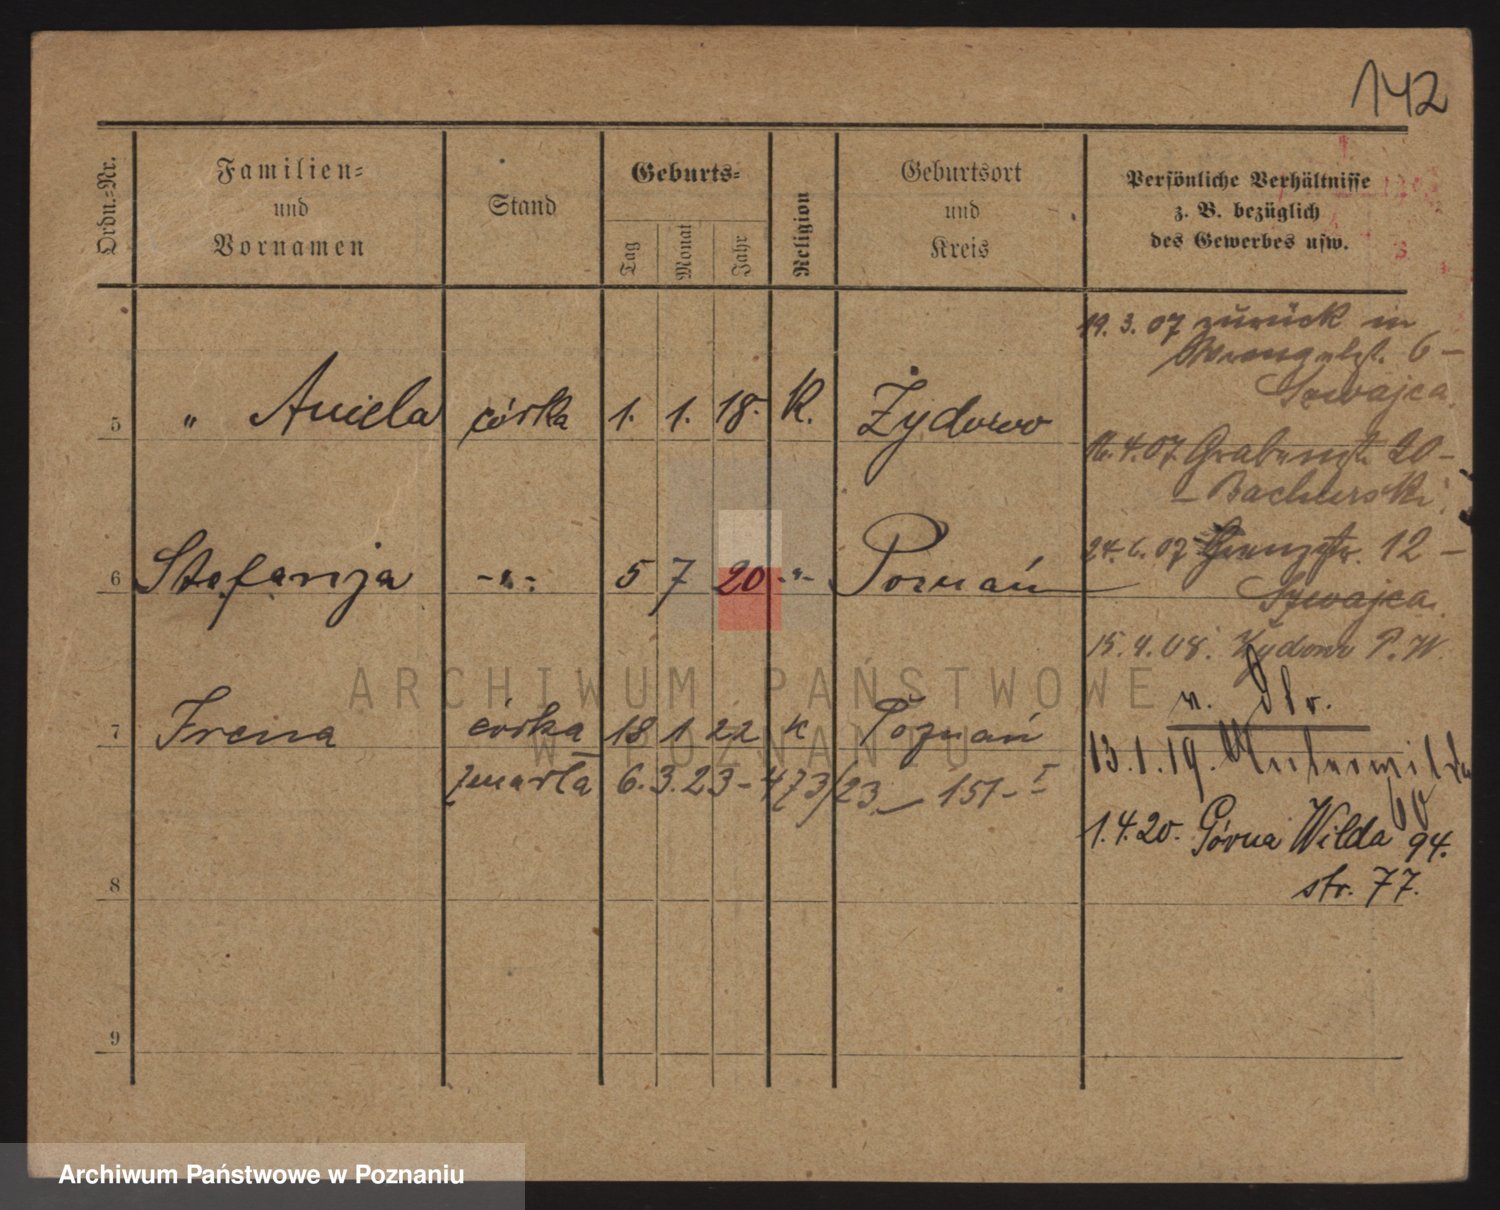 142
Ordn.-Nr.
Familien-
und
Vornamen
Stand
Geburts-
Tag
Monat
Jahr
Religion
Geburtsort
und
Kreis
Persönliche Verhältnisse
z. B. bezüglich
des Gewerbes usw.
19. 3. 07 zurück in
Wrangelst. 6 –
Szwajca.
5 " Aniela córka 1. 1. 18. K. Żydowo
16. 4. 07 Grabenst. 20 –
– Bachurski
6 Stefanja -"- 5 7 20 -"- Poznań
24. 6. 07 Grenzstr. 12 –
Szwajca.
15. 4. 08. P. W.
n.
7 Irena córka 18 1 22 K Poznań
zmarła 6. 3. 23 – 473/23 – 151 – I
13. 1. 19.
60
1. 4. 20. Górna Wilda 94.
str. 77.
8
9
ARCHIWUM PAŃSTWOWE
W POZNANIU
Archiwum Państwowe w Poznaniu